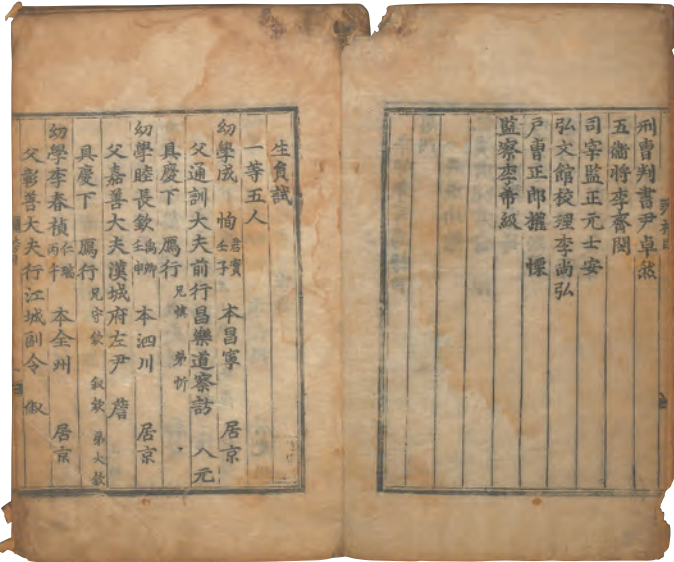 刑曹判書尹卓然
五衛將李齊閔
司宰監正元士安
弘文館校理李尚弘
戶曹正郎權憟
監察李希級
生員試
一等五人
幼學成恂 君實 壬子 本昌寧 居京
父通訓大夫前行昌樂道察訪八元
具慶下 鴈行 兄慎 弟忻
幼學睦長欽 禹卿 壬申 本泗川 居京
父嘉善大夫漢城府左尹詹
具慶下 鴈行 兄守欽 叙欽 弟大欽
幼學李春楨 仁瑞 丙午 本全州 居京
父彰善大夫行江城副令俶